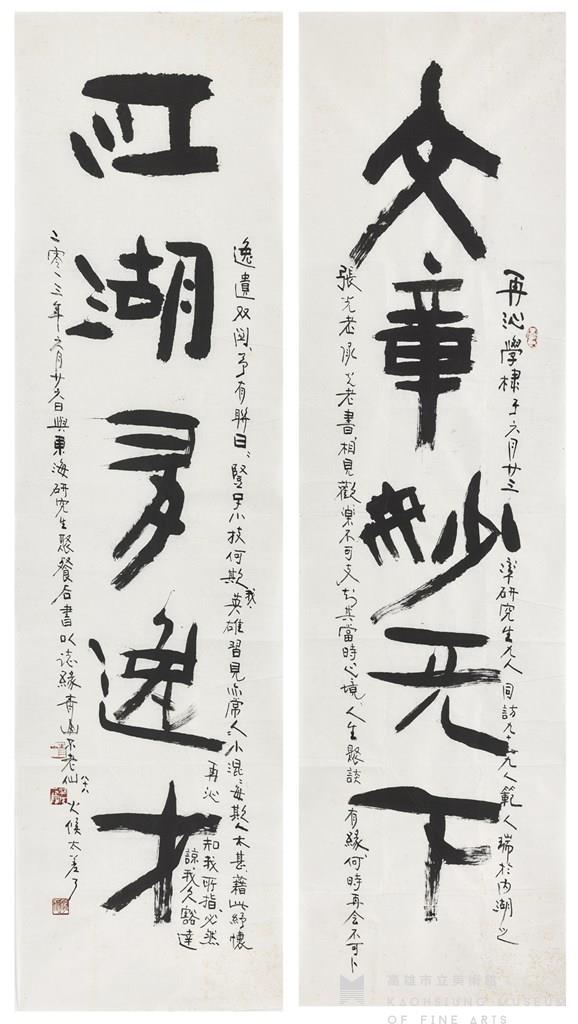 文章妙无下
再沁學棣于六月廿三
率研究生九人同訪九十九人範人瑞於內湖之
書相見歡樂不可支
其當時心境、人生聚談有緣何時再会不可卜
江湖多逸才
逸遺双関、予有聯曰、豎子小技何欺我、英雄習見亦常人、小混、每欺人太甚藉此紓懷
再沁知我所指、必然
諒我久豁達
二零一三年六月廿六日與東海研究生聚餐后書以誌緣青山不老仙
八十八火候太差了
高雄市立美術館
KAOHSIUNG MUSEUM
OF FINE ARTS